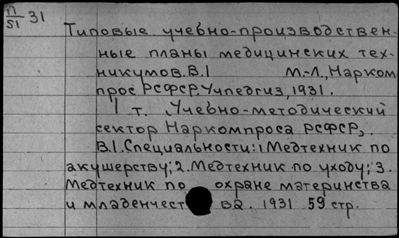 П/51 31
Типовые учебно-производствен-
ные планы медицинских тех-
никумов. В.1 М.-Л., Нарком
прос РСФСР, Учпедгиз, 1931.
1 т. Учебно-методический
сектор Наркомпроса РСФСР,.
В.1. Специальности: 1 Медтехник по
акушерству; 2. Медтехник по уходу; 3.
Медтехник по охране материнства
и младенчест ва. 1931 59 стр.